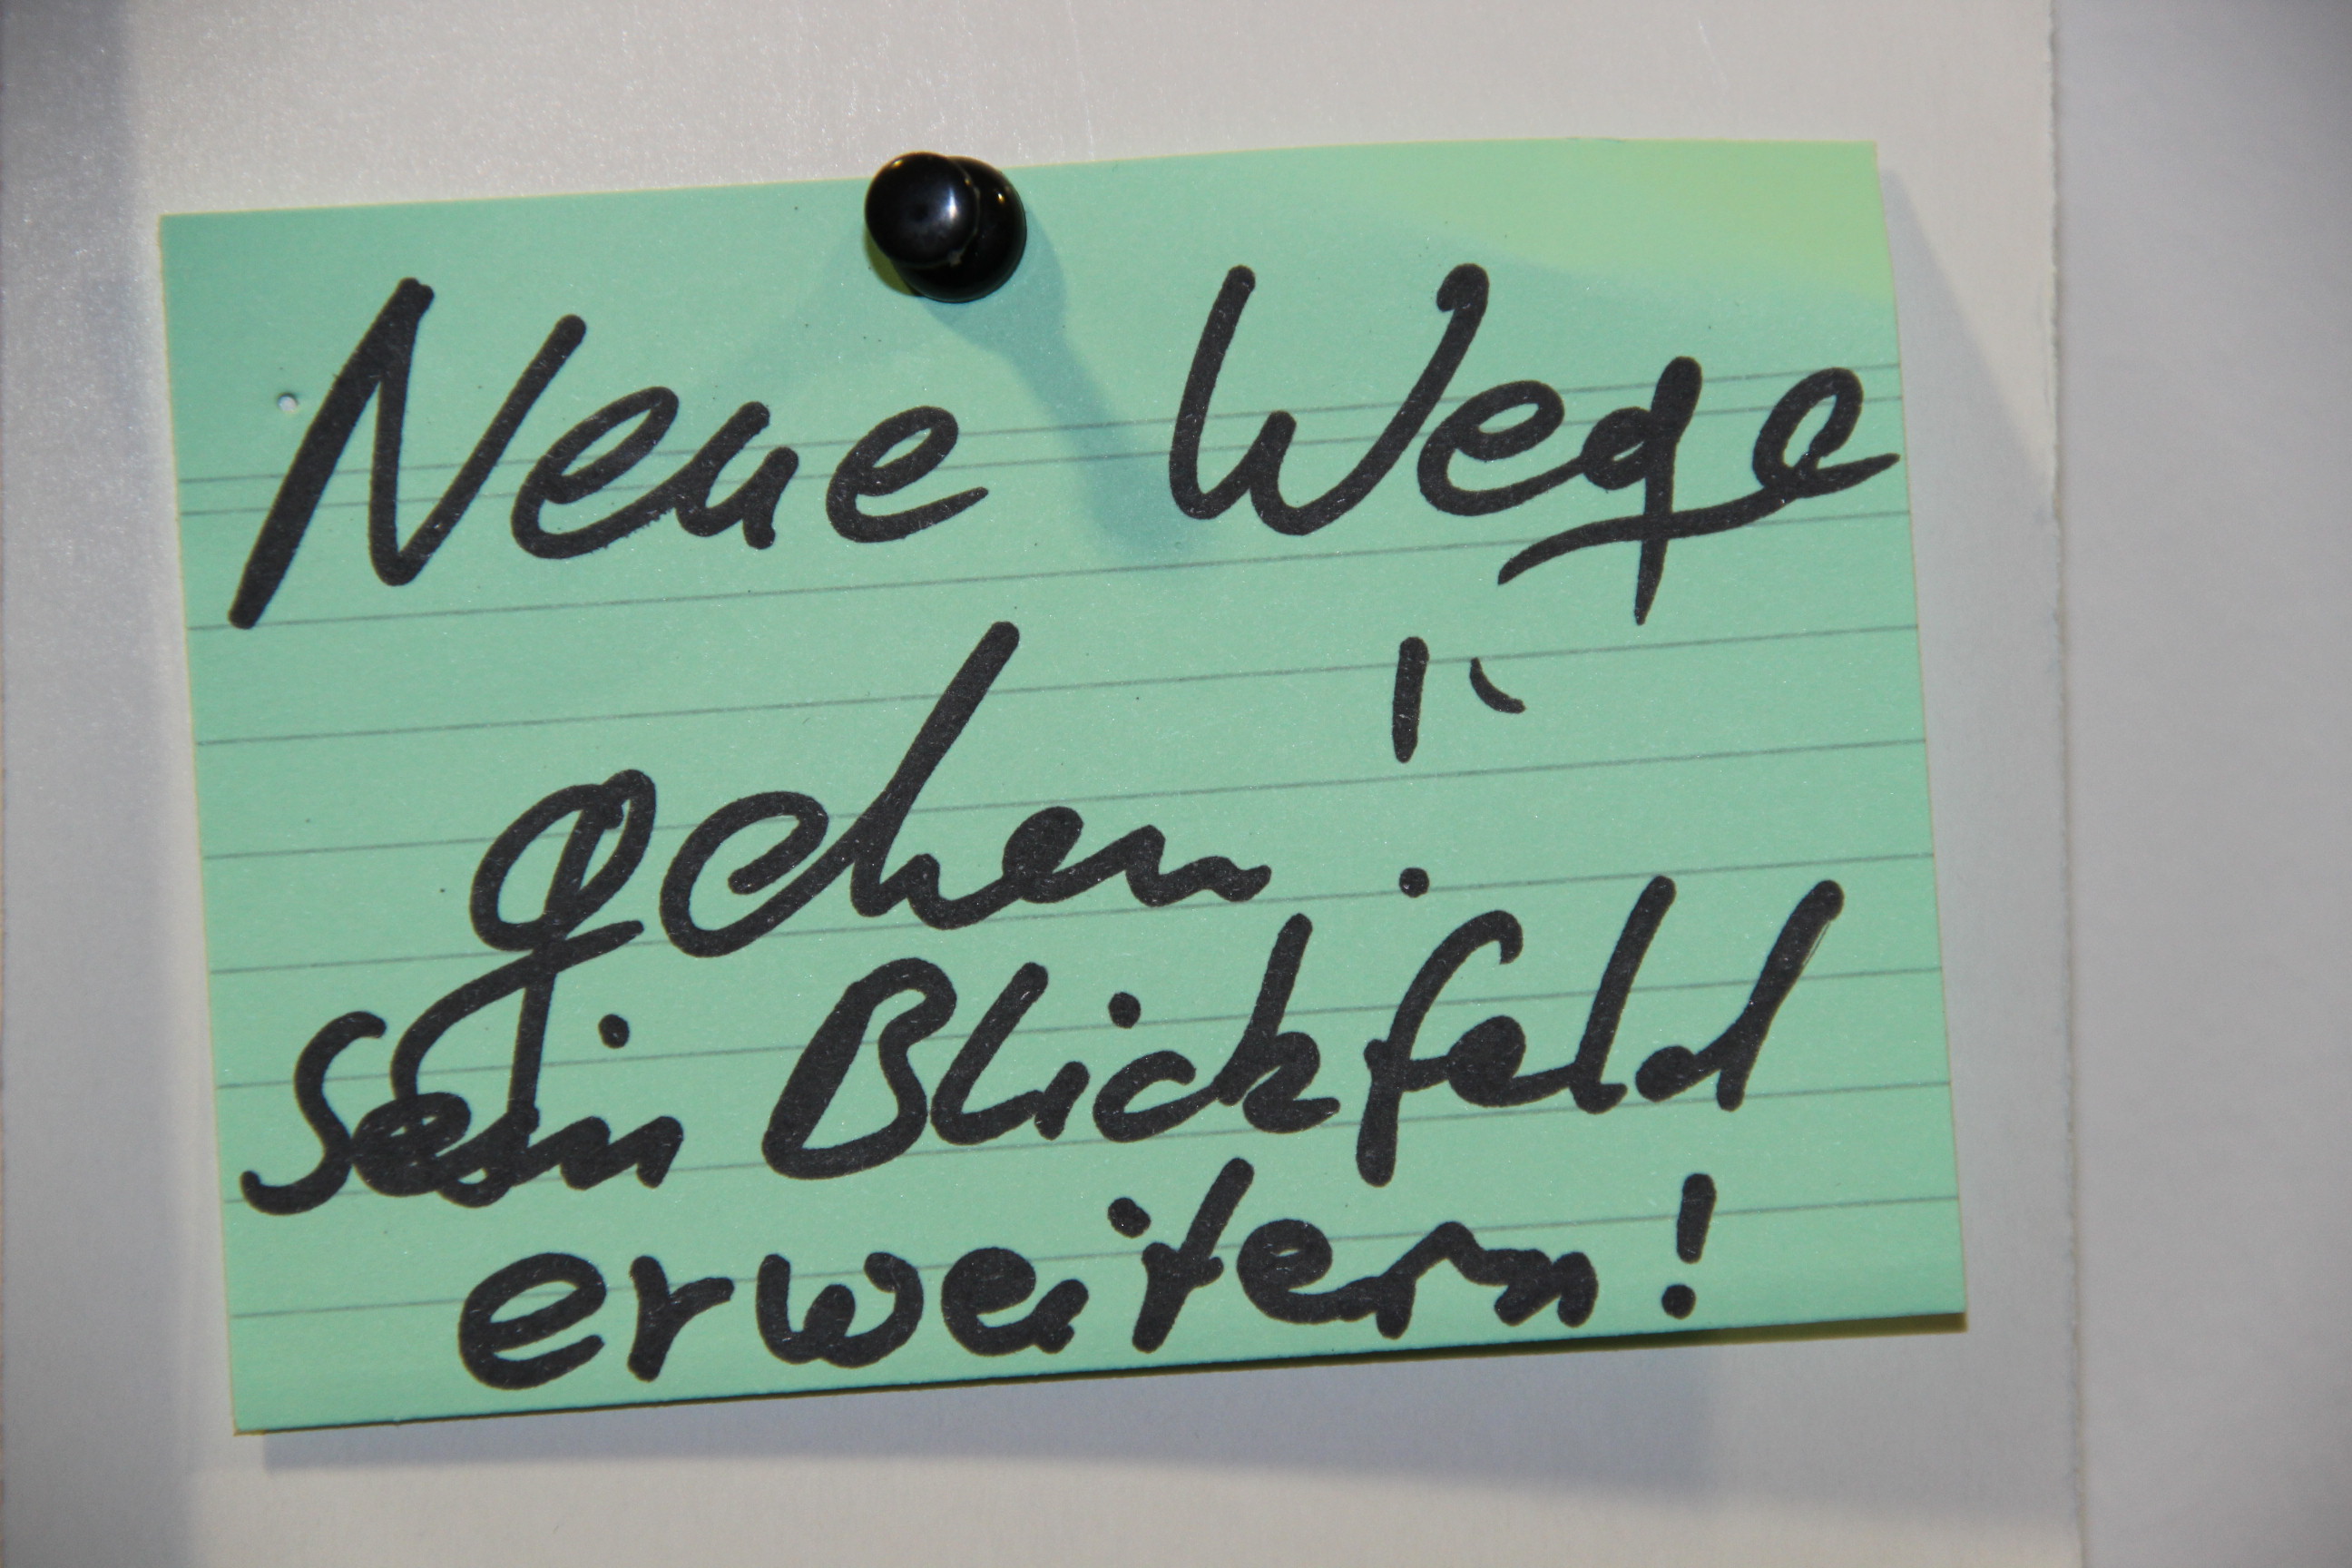 Neue Wege
gehen!
sein Blickfeld
erweitern!